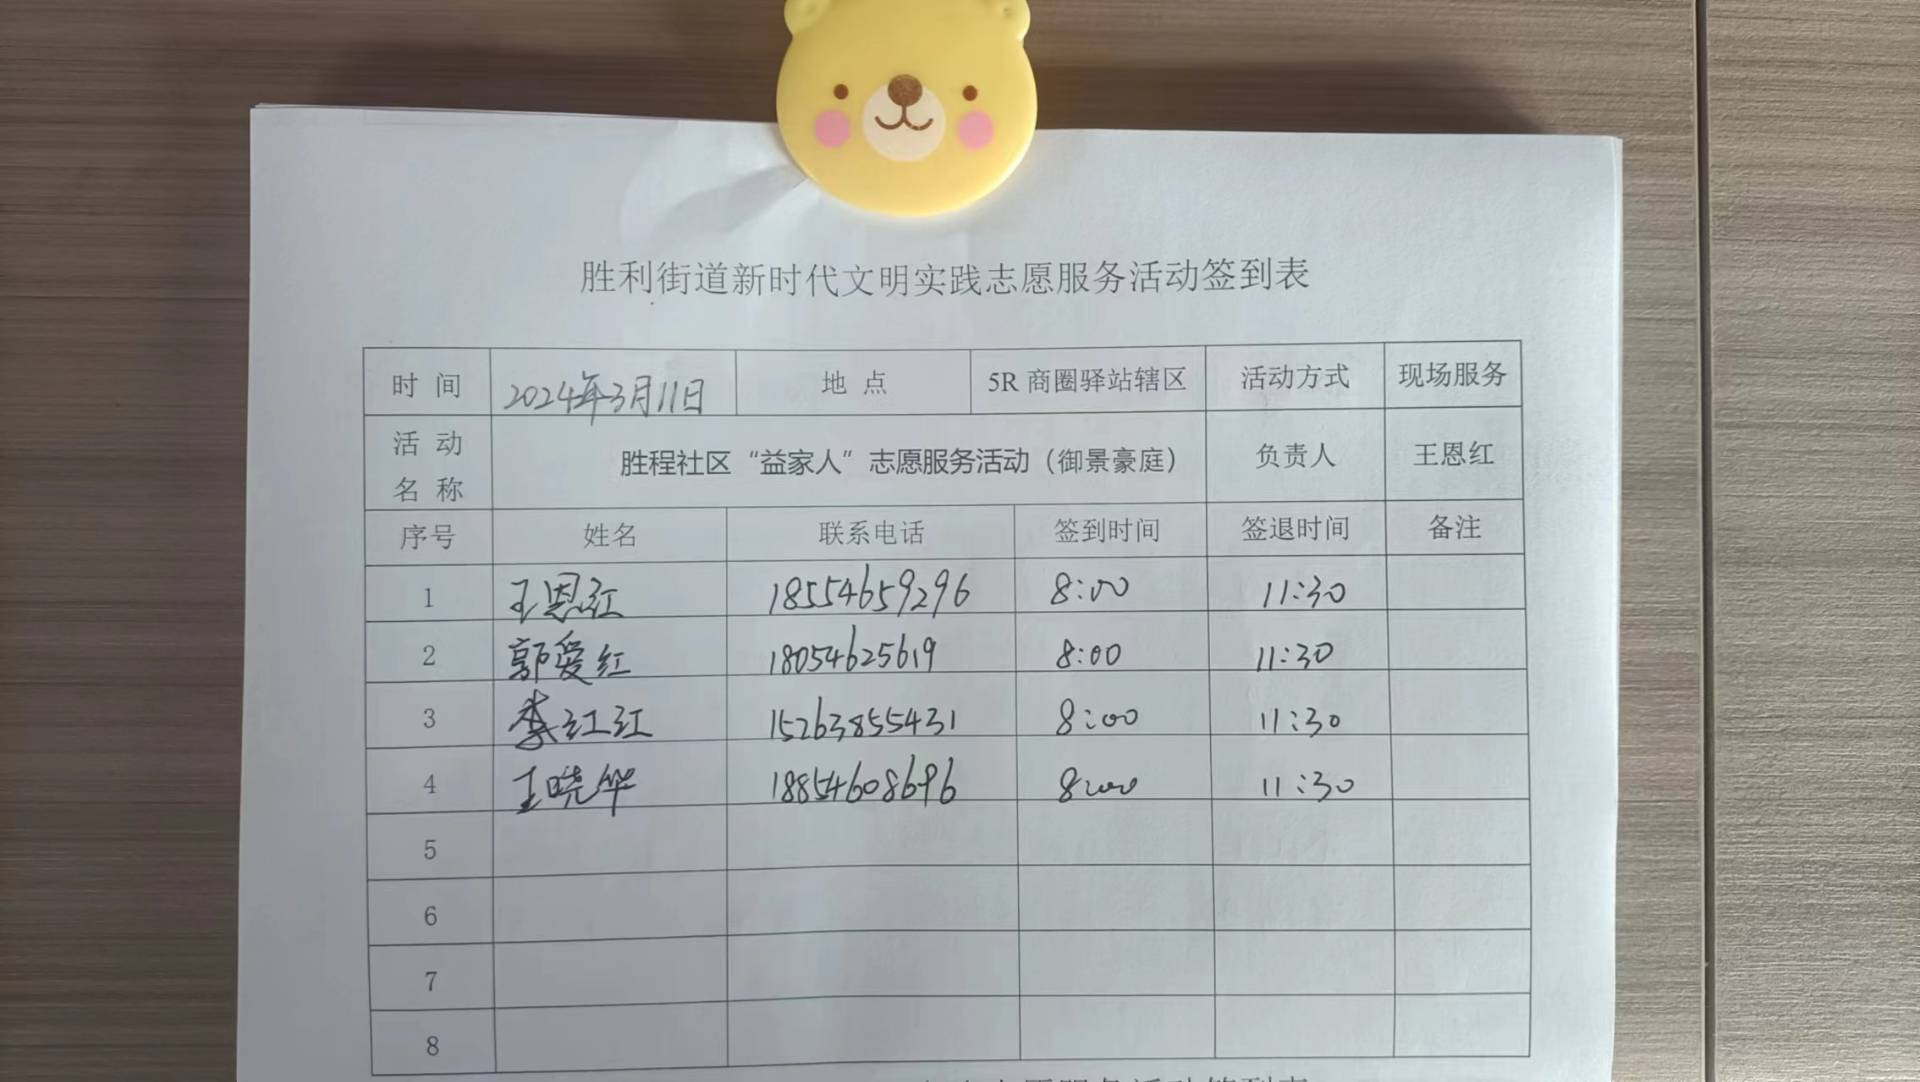 胜利街道新时代文明实践志愿服务活动签到表
时 间 2024年3月11日 地 点 5R 商圈驿站辖区 活动方式 现场服务
活 动 名 称 胜程社区“益家人”志愿服务活动（御景豪庭） 负责人 王恩红
序号 姓名 联系电话 签到时间 签退时间 备注
1 王恩红 18554659296 8:00 11:30
2 郭爱红 18054625619 8:00 11:30
3 李红红 15263855431 8:00 11:30
4 王晓华 18854608696 8:00 11:30
5
6
7
8